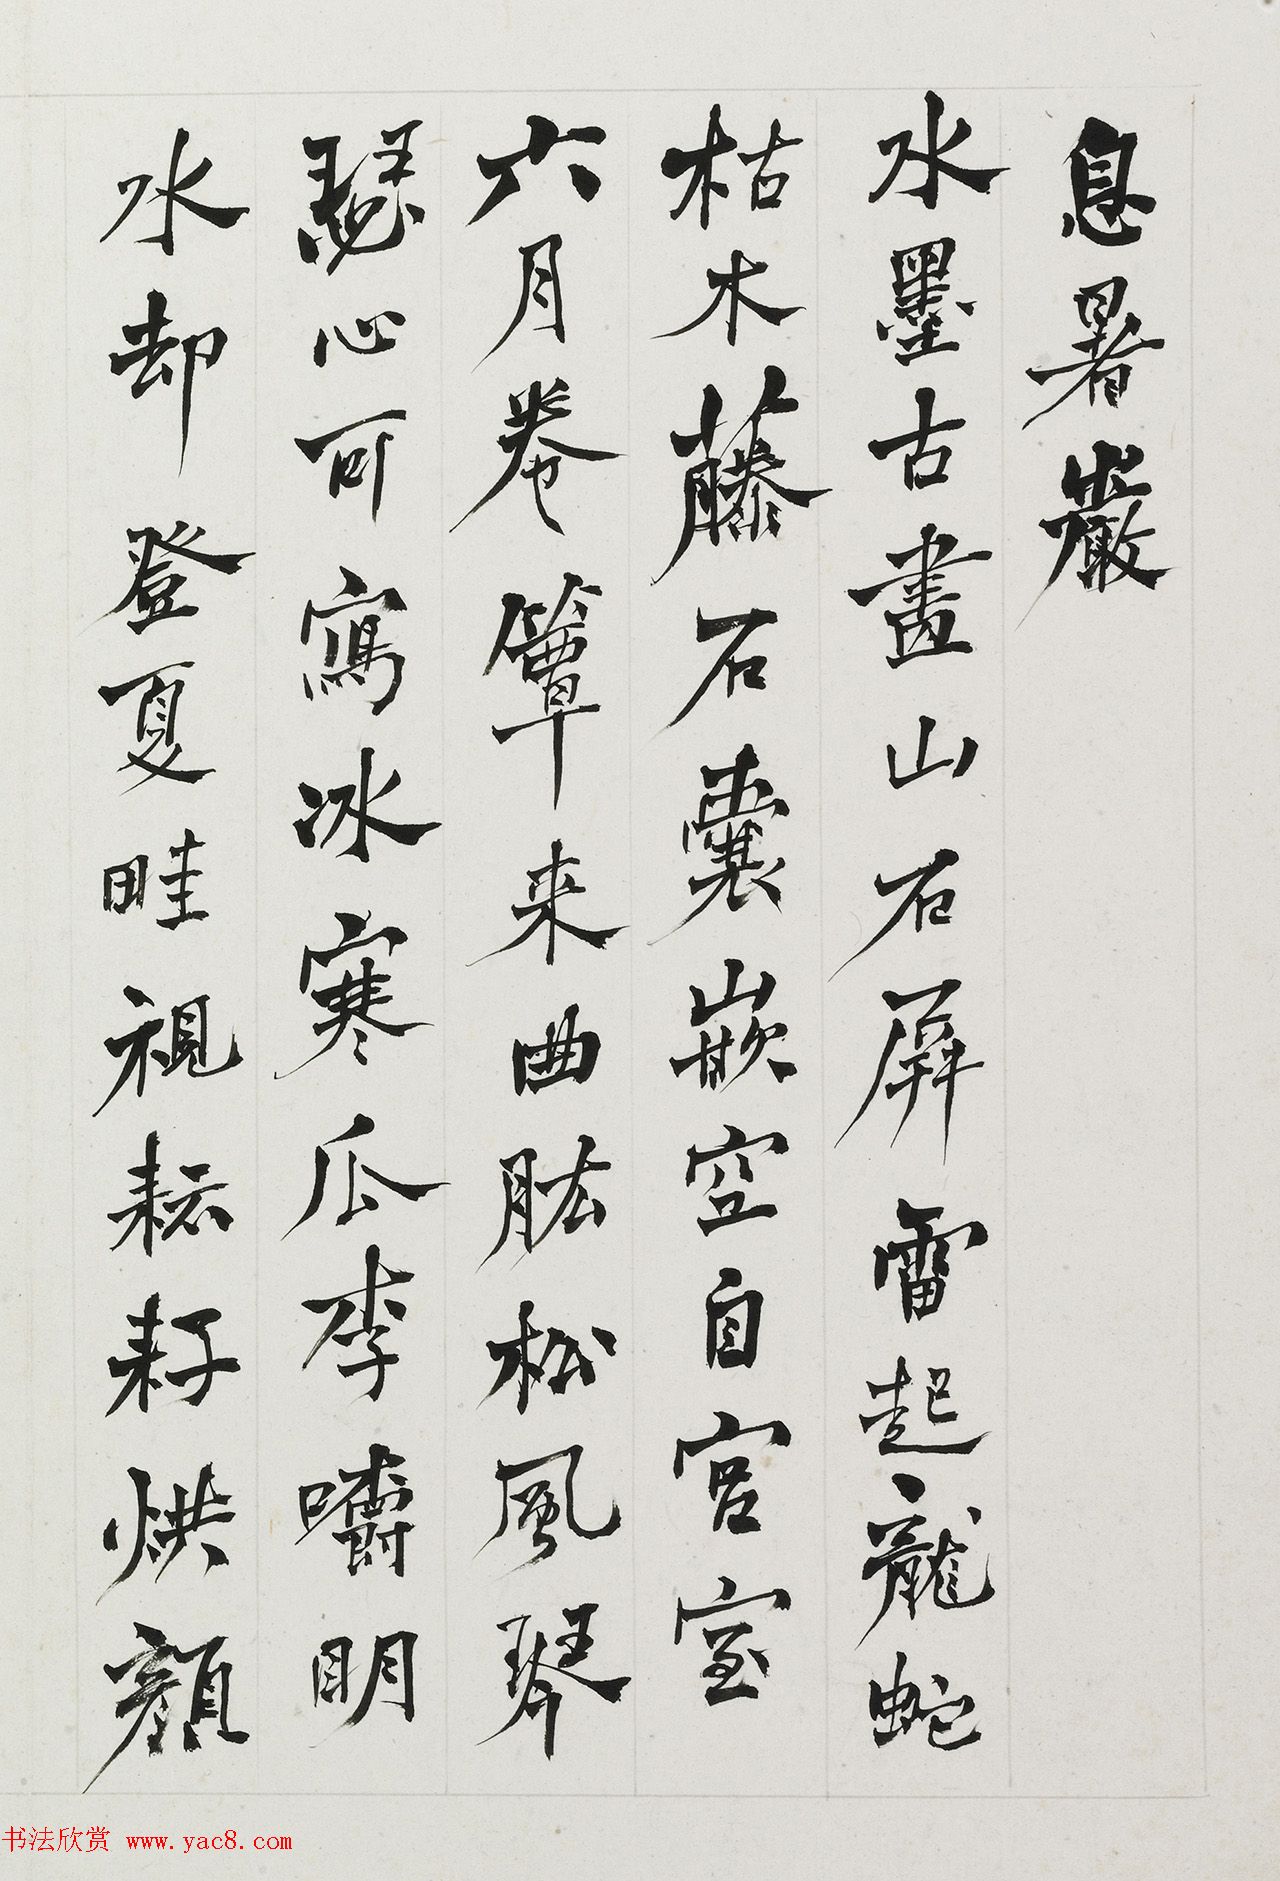 息暑巖
水墨古畫山石屏雷起龍蛇
枯木藤石囊嵌空自宮室
六月卷簟来曲肱松風琴
瑟心可寫冰寒瓜李嚼明
水却登夏畦視耘耔烘顏
书法欣赏 www.yac8.com